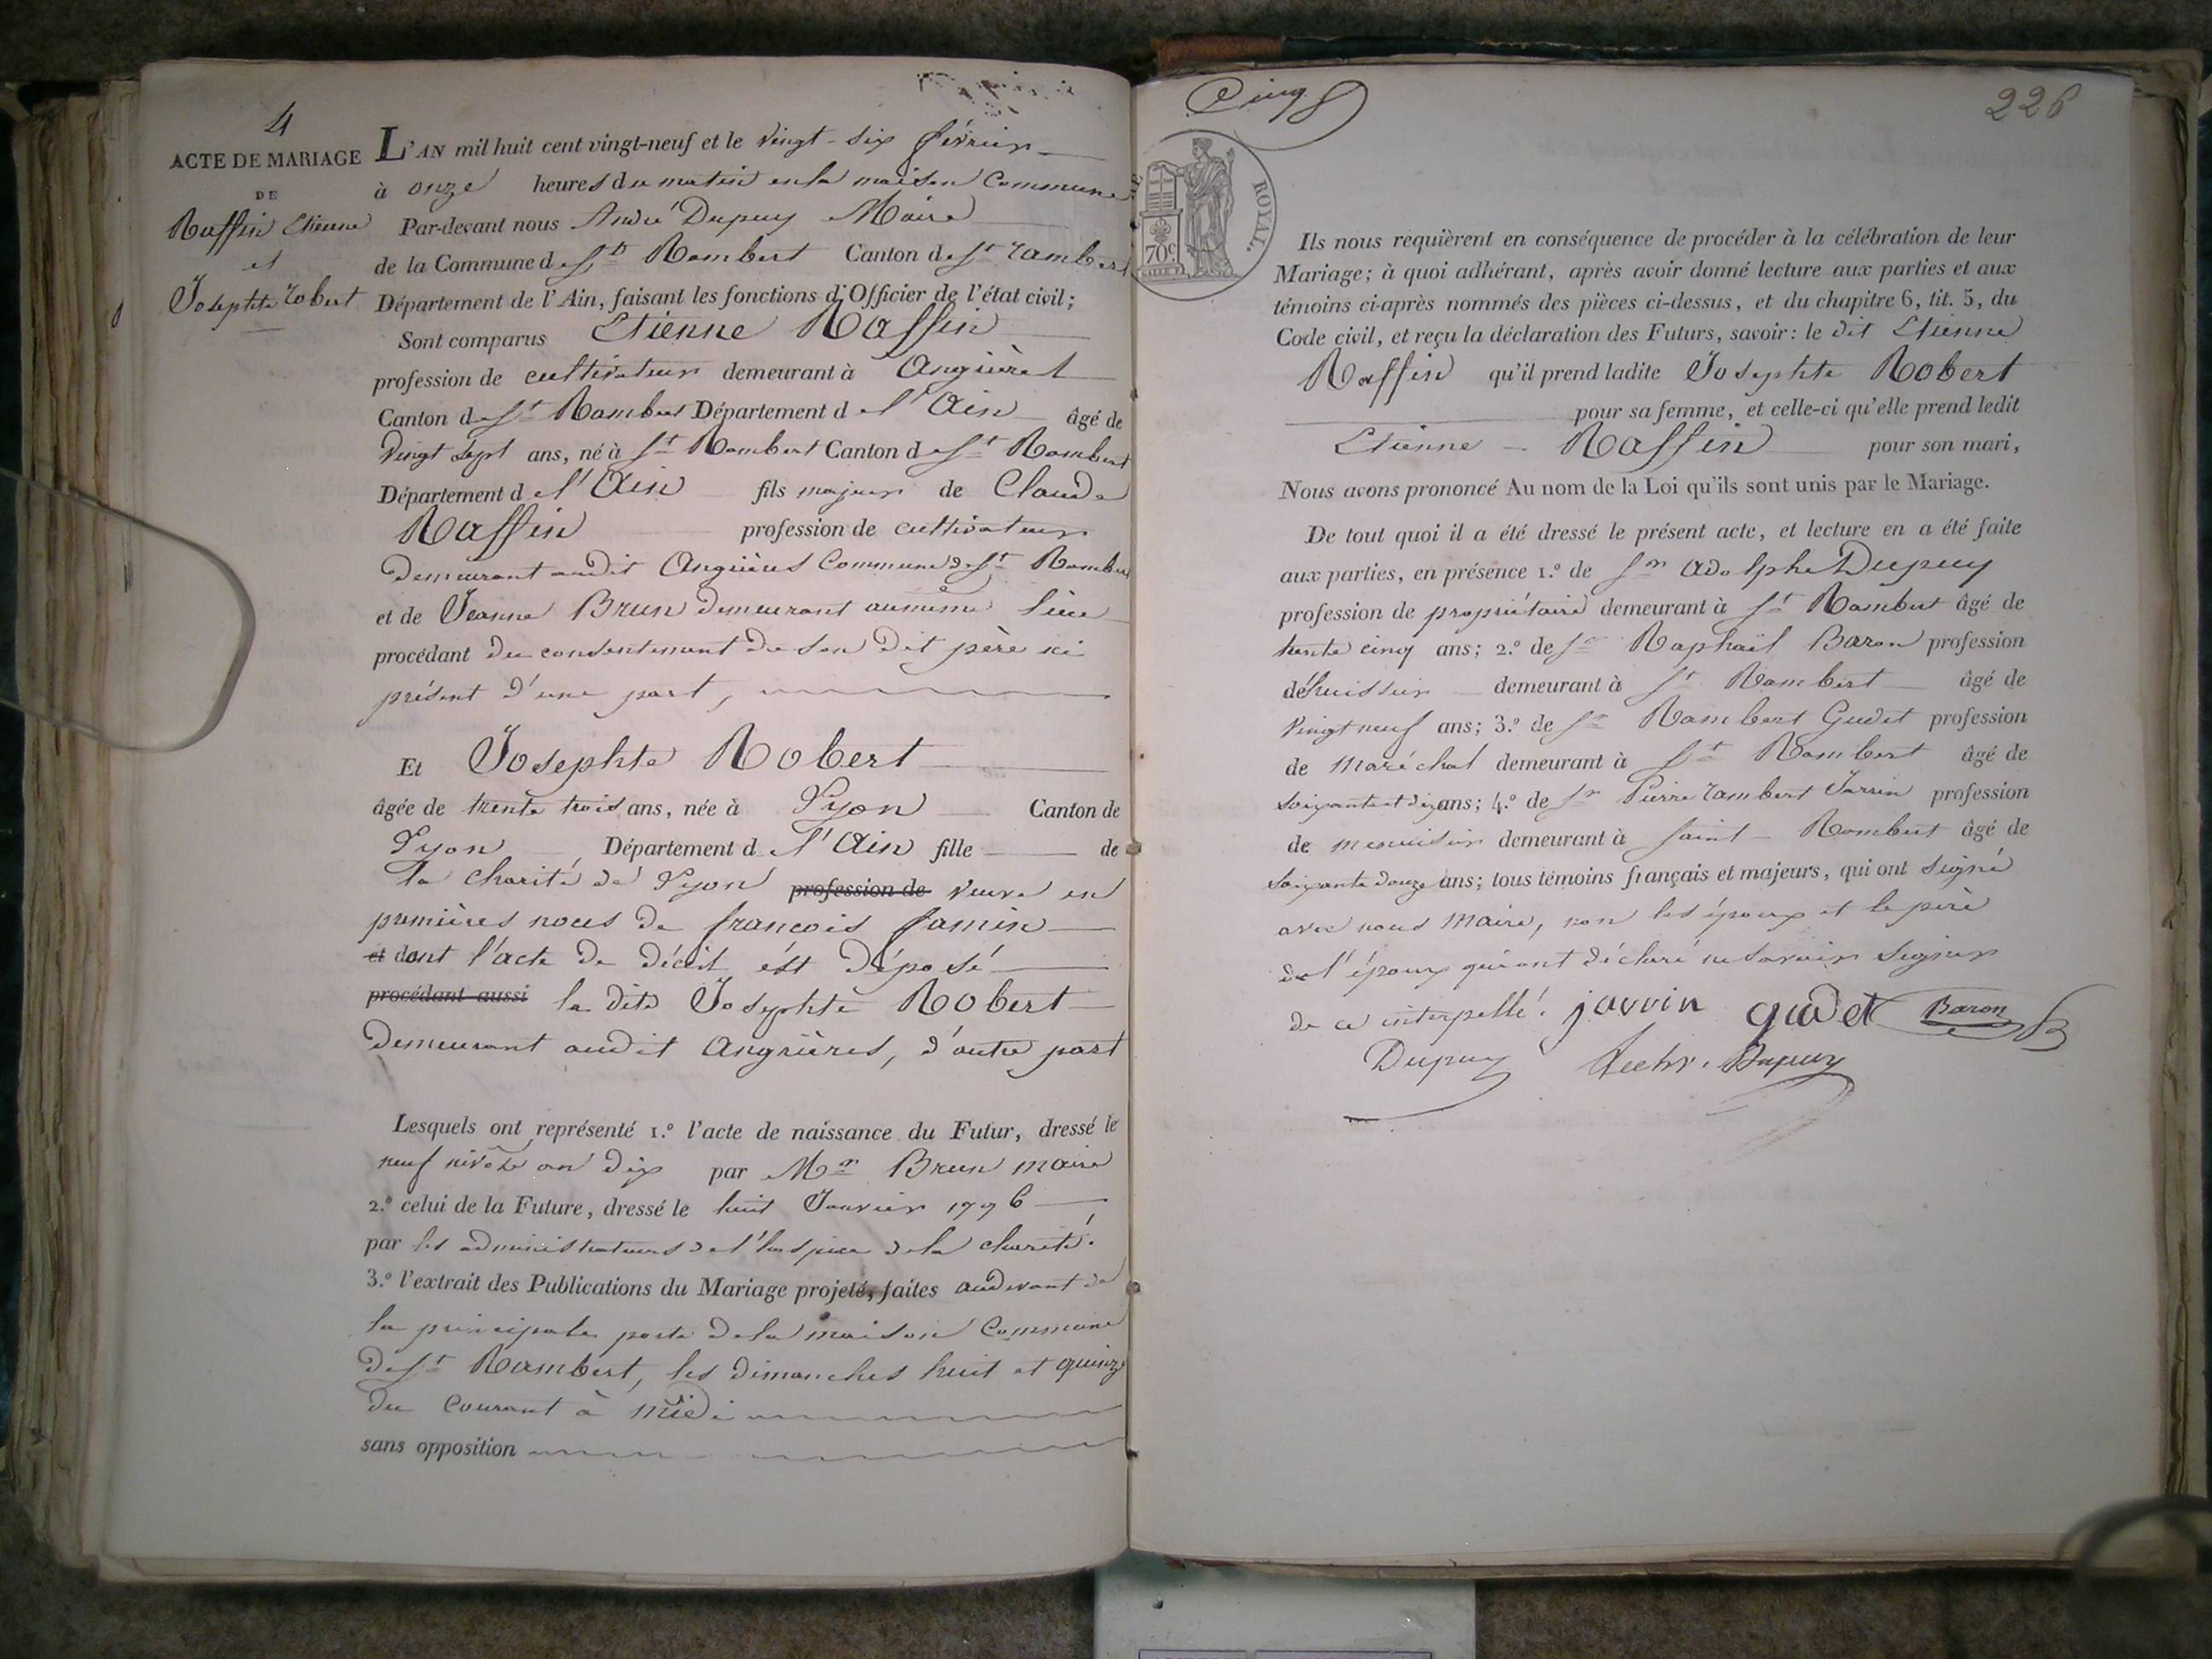 4
ACTE DE MARIAGE
DE
Raffin Etienne
et
Josephte robert
L'AN mil huit cent vingt-neuf et le vingt-six février
à onze heures du matin en la maison Commune
Par-devant nous André Dupuy Maire
de la Commune de St Rambert Canton de St rambert
Département de l'Ain, faisant les fonctions d'Officier de l'état civil;
Sont comparus Etienne Raffin
profession de cultivateur demeurant à Angrières
Canton de St Rambert Département de l'Ain âgé de
vingt sept ans, né à St Rambert Canton de St Rambert
Département de l'Ain fils majeur de Claude
Raffin profession de cultivateur
demeurant audit Angrières Commune de St Rambert
et de Jeanne Brun demeurant au même lieu
procédant du consentement de son dit père ici
présent d'une part,
Et Josephte Robert
âgée de trente trois ans, née à Lyon Canton de
Lyon Département de l'Ain fille de
la charité de Lyon profession de veuve en
premières noces de francois Jamin
et dont l'acte de décès est déposé
procédant aussi la dite Josephte Robert
demeurant audit Angrières, d'autre part
Lesquels ont représenté 1.º l'acte de naissance du Futur, dressé le
neuf nivôse an dix par Mr Brun maire
2.º celui de la Future, dressé le huit Janvier 1796
par les administrateurs de l'hospice de la charité.
3.º l'extrait des Publications du Mariage projeté, faites audevant de
la principale porte de la maison Commune
de St Rambert, les dimanches huit et quinze
du Courant à midi
sans opposition
Cinq
226
ROYAL.
70c
Ils nous requièrent en conséquence de procéder à la célébration de leur
Mariage; à quoi adhérant, après avoir donné lecture aux parties et aux
témoins ci-après nommés des pièces ci-dessus, et du chapitre 6, tit. 5, du
Code civil, et reçu la déclaration des Futurs, savoir: le dit Etienne
Raffin qu'il prend ladite Josephte Robert
pour sa femme, et celle-ci qu'elle prend ledit
Etienne Raffin pour son mari,
Nous avons prononcé Au nom de la Loi qu'ils sont unis par le Mariage.
De tout quoi il a été dressé le présent acte, et lecture en a été faite
aux parties, en présence 1.º de Sr adolphe Dupuy
profession de propriétaire demeurant à St Rambert âgé de
trente cinq ans; 2.º de Sr Raphaël Baron profession
d'huissier demeurant à St Rambert âgé de
vingt neuf ans; 3.º de Sr Rambert Gudet profession
de maréchal demeurant à St Rambert âgé de
soixante et dix ans; 4.º de Sr Pierre rambert Jarrin profession
de menuisier demeurant à Saint Rambert âgé de
soixante douze ans; tous témoins français et majeurs, qui ont signé
avec nous maire, non les époux et le père
de l'époux qui ont déclaré ne savoir signer
de ce interpellé. jarrin gudet Baron
Dupuy Dupuy